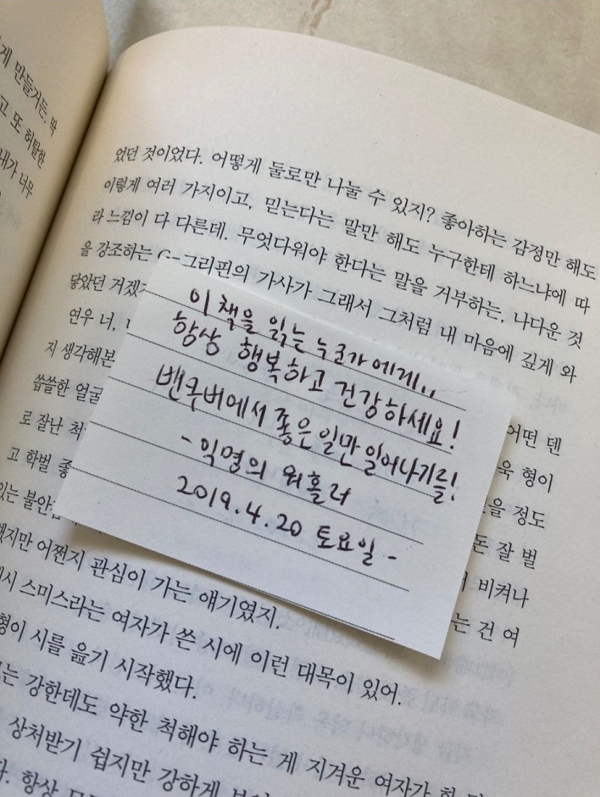 게 만들거든. 딱
고 또 허탈한
내가 너무
었던 것이었다. 어떻게 둘로만 나눌 수 있지? 좋아하는 감정만 해도
이렇게 여러 가지이고, 믿는다는 말만 해도 누구한테 하느냐에 따
라 느낌이 다 다른데. 무엇다워야 한다는 말을 거부하는, 나다운 것
을 강조하는 G-그리핀의 가사가 그래서 그처럼 내 마음에 깊게 와
닿았던 거겠
연우 너,
지 생각해본
씁쓸한 얼굴
어떤 덴
로 잘난 척
욱 형이
고 학벌 좋
을 정도
있는 불안
돈 잘 벌
했지만 어쩐지 관심이 가는 얘기였지.
비켜나
시 스미스라는 여자가 쓴 시에 이런 대목이 있어.
는 건 여
형이 시를 읊기 시작했다.
는 강한데도 약한 척해야 하는 게 지겨운 여자가 한
상처받기 쉽지만 강하게
다. 항상
이 책을 읽는 누군가에게..
항상 행복하고 건강하세요!
밴쿠버에서 좋은 일만 일어나기를!
- 익명의 워홀러
2019.4.20 토요일 -